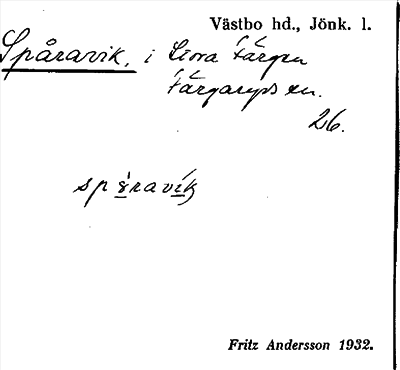 Västbo hd., Jönk. l.
Spåravik, i Stora Färgen
Färgaryds sn.
26.
spåravik
Fritz Andersson 1932.